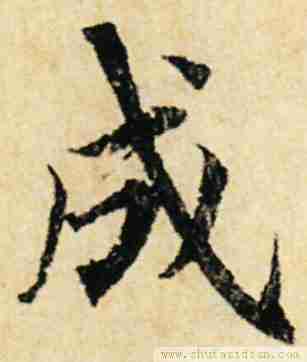 成
www.shufazidian.com